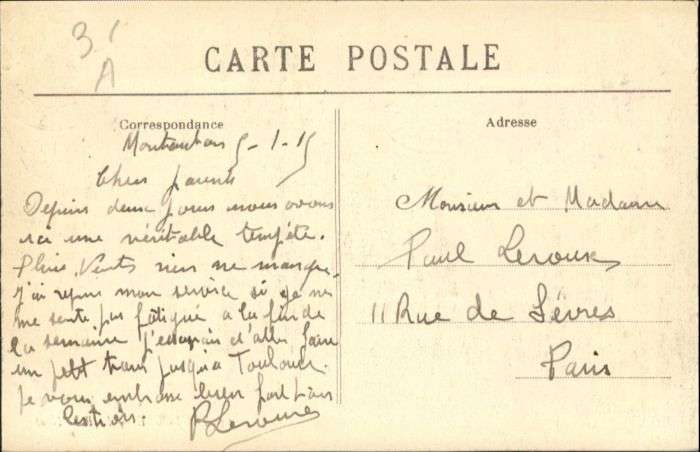 3'
A
CARTE POSTALE
Correspondance
Montauban 5-1-15
Chers parents
Depuis deux jours nous avons
ici une véritable tempête.
Pluie, Vents rien ne manque.
J'ai repris mon service si je ne
me sente pas fatigué a la fin de
la semaine j'essayrais d'aller faire
un petit tours jusqu'a Toulouse.
Je vous embrasse bien fort tous
les trois. P Leroux
Adresse
Monsieur et Madame
Paul Leroux
11 Rue de Sèvres
Paris